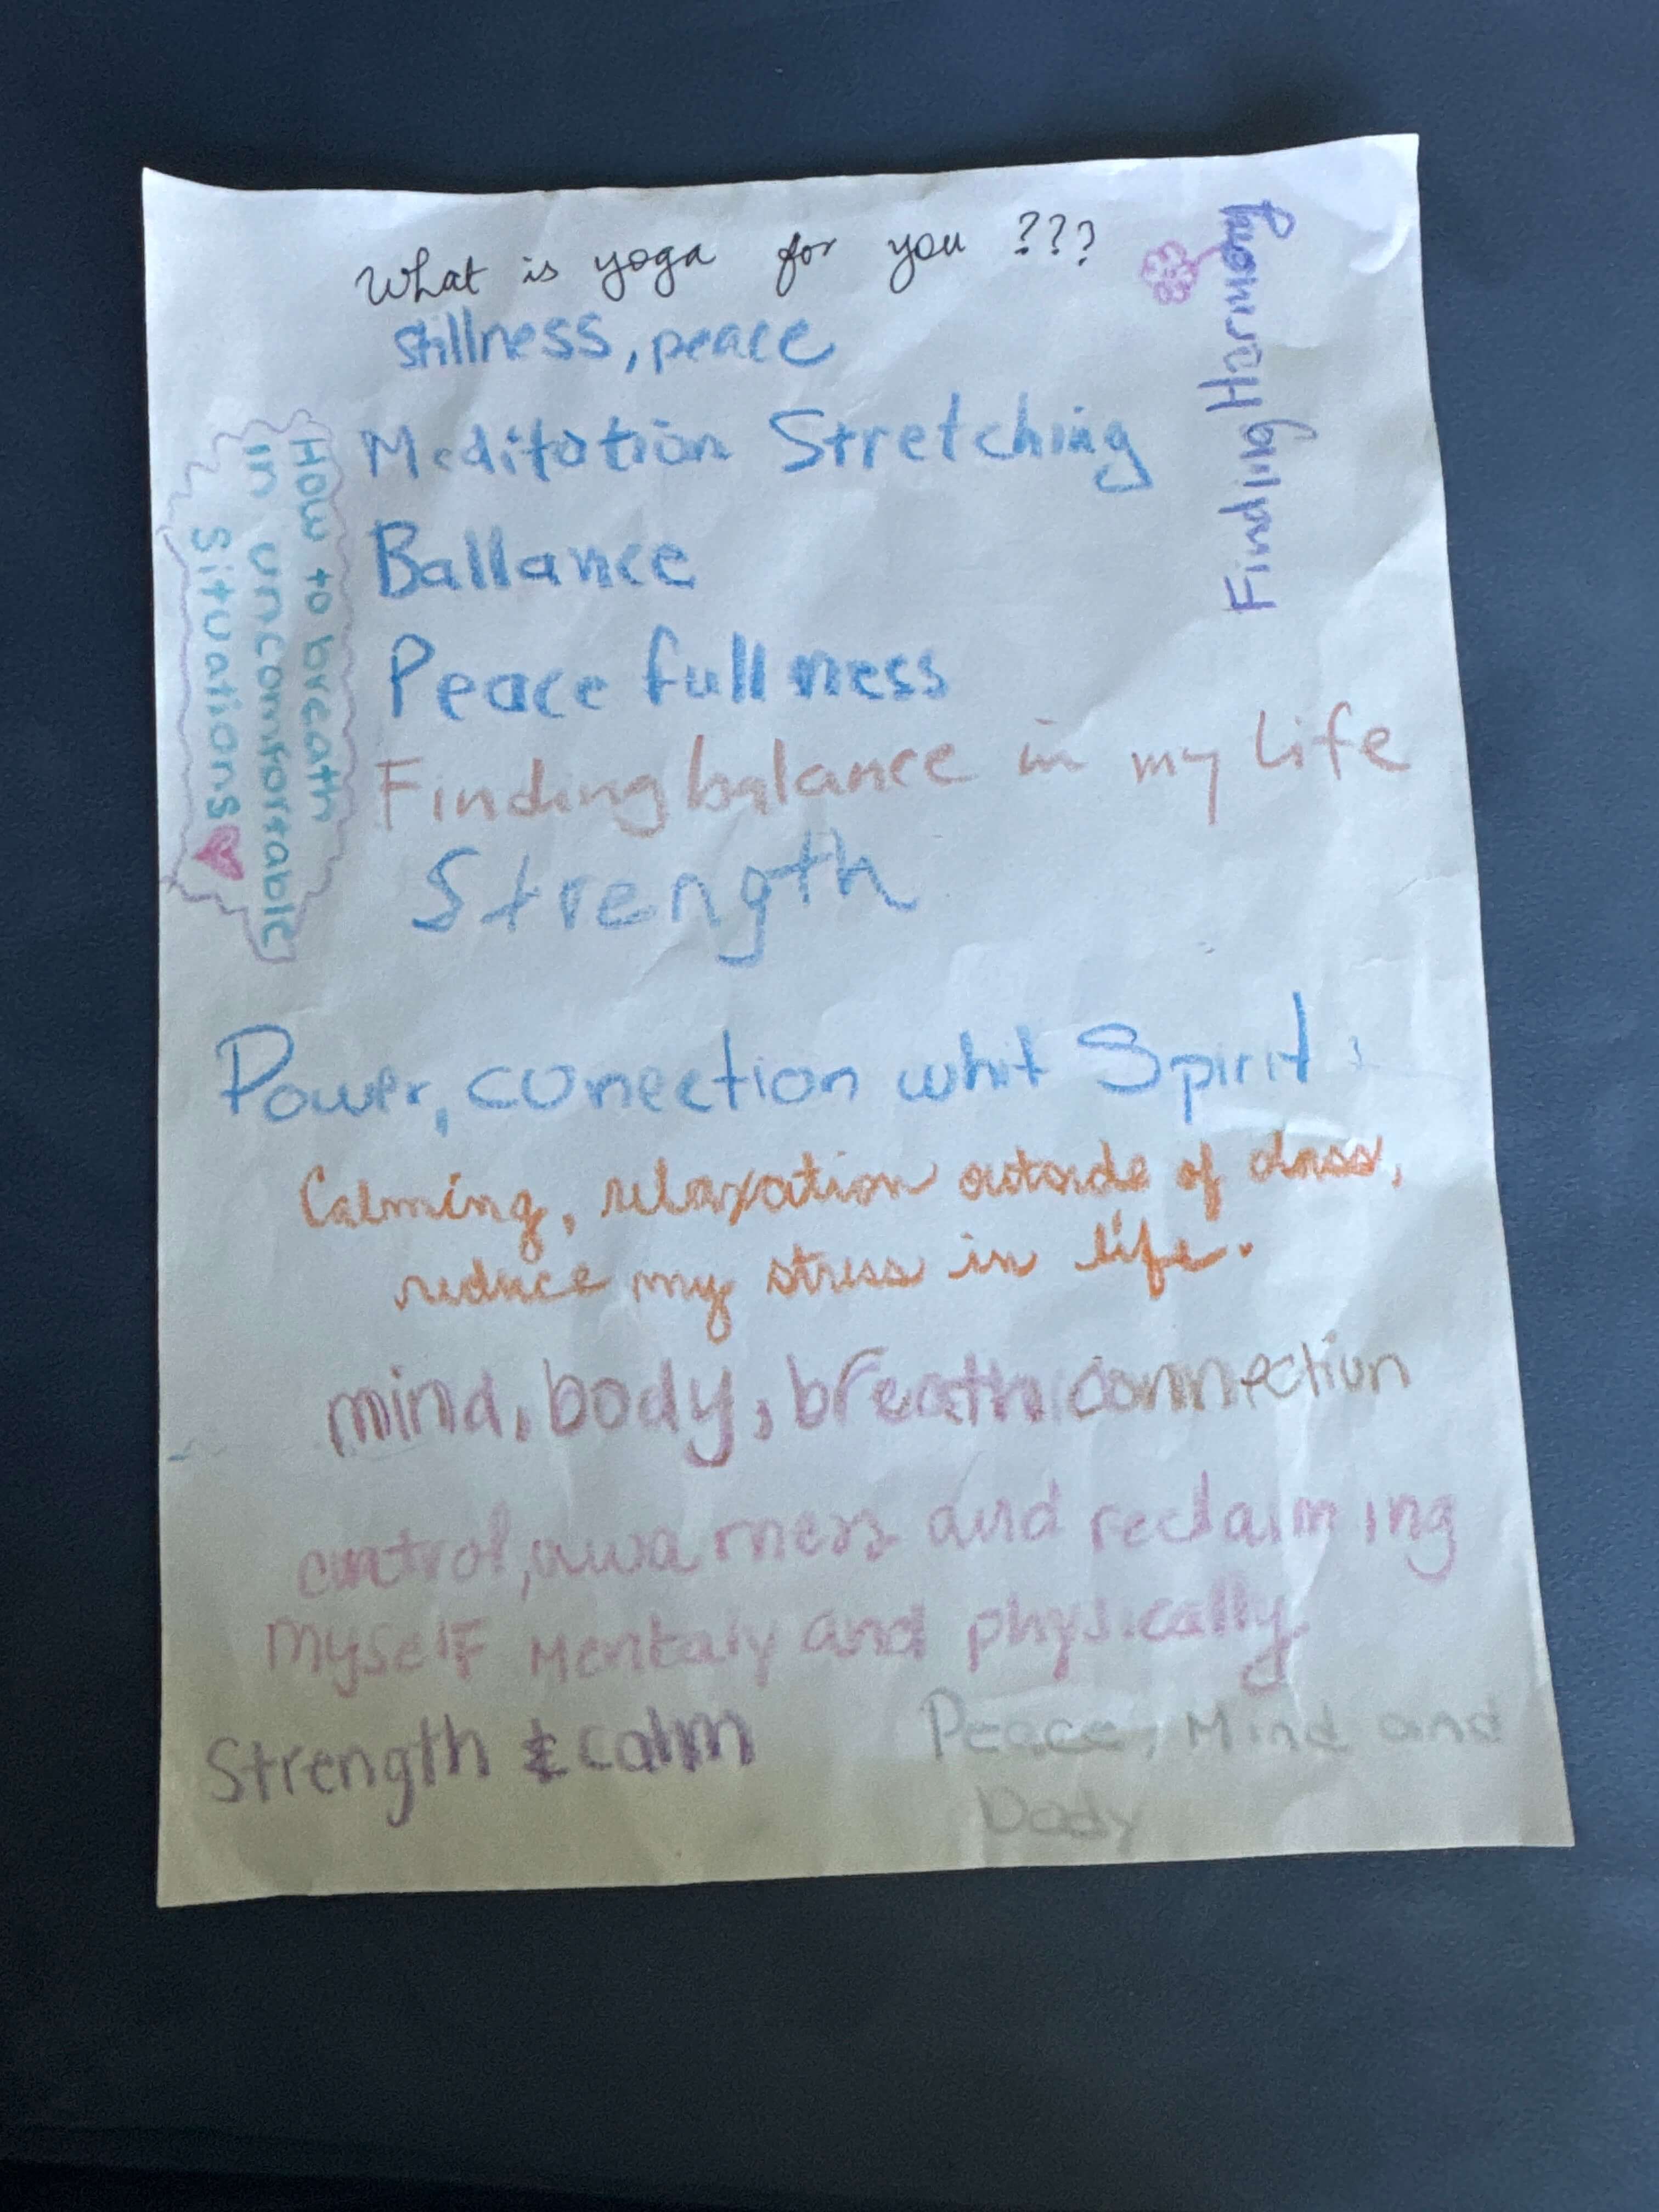 What is yoga for you ???
stillness, peace
Finding Harmony
Meditation Stretching
Ballance
Peace fullness
How to breath
in uncomfortable
situations
Finding balance in my life
Strength
Power, conection whit Spirit
Calming, relaxation outside of class,
reduce my stress in life.
mind, body, breath connection
control, awarness and reclaiming
myself Mentaly and physically
Strength & calm
Peace, Mind and
body